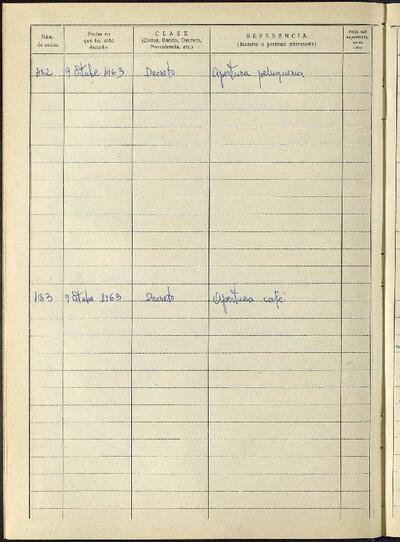 Núm. de orden
Fecha en que ha sido dictado
CLASE
(Orden, Bando, Decreto, Providencia, etc.)
REFERENCIA
(Materia o persona interesada)
182 9 Octubre 1963 Decreto Apertura peluqueria
183 9 Octubre 1963 Decreto Apertura café